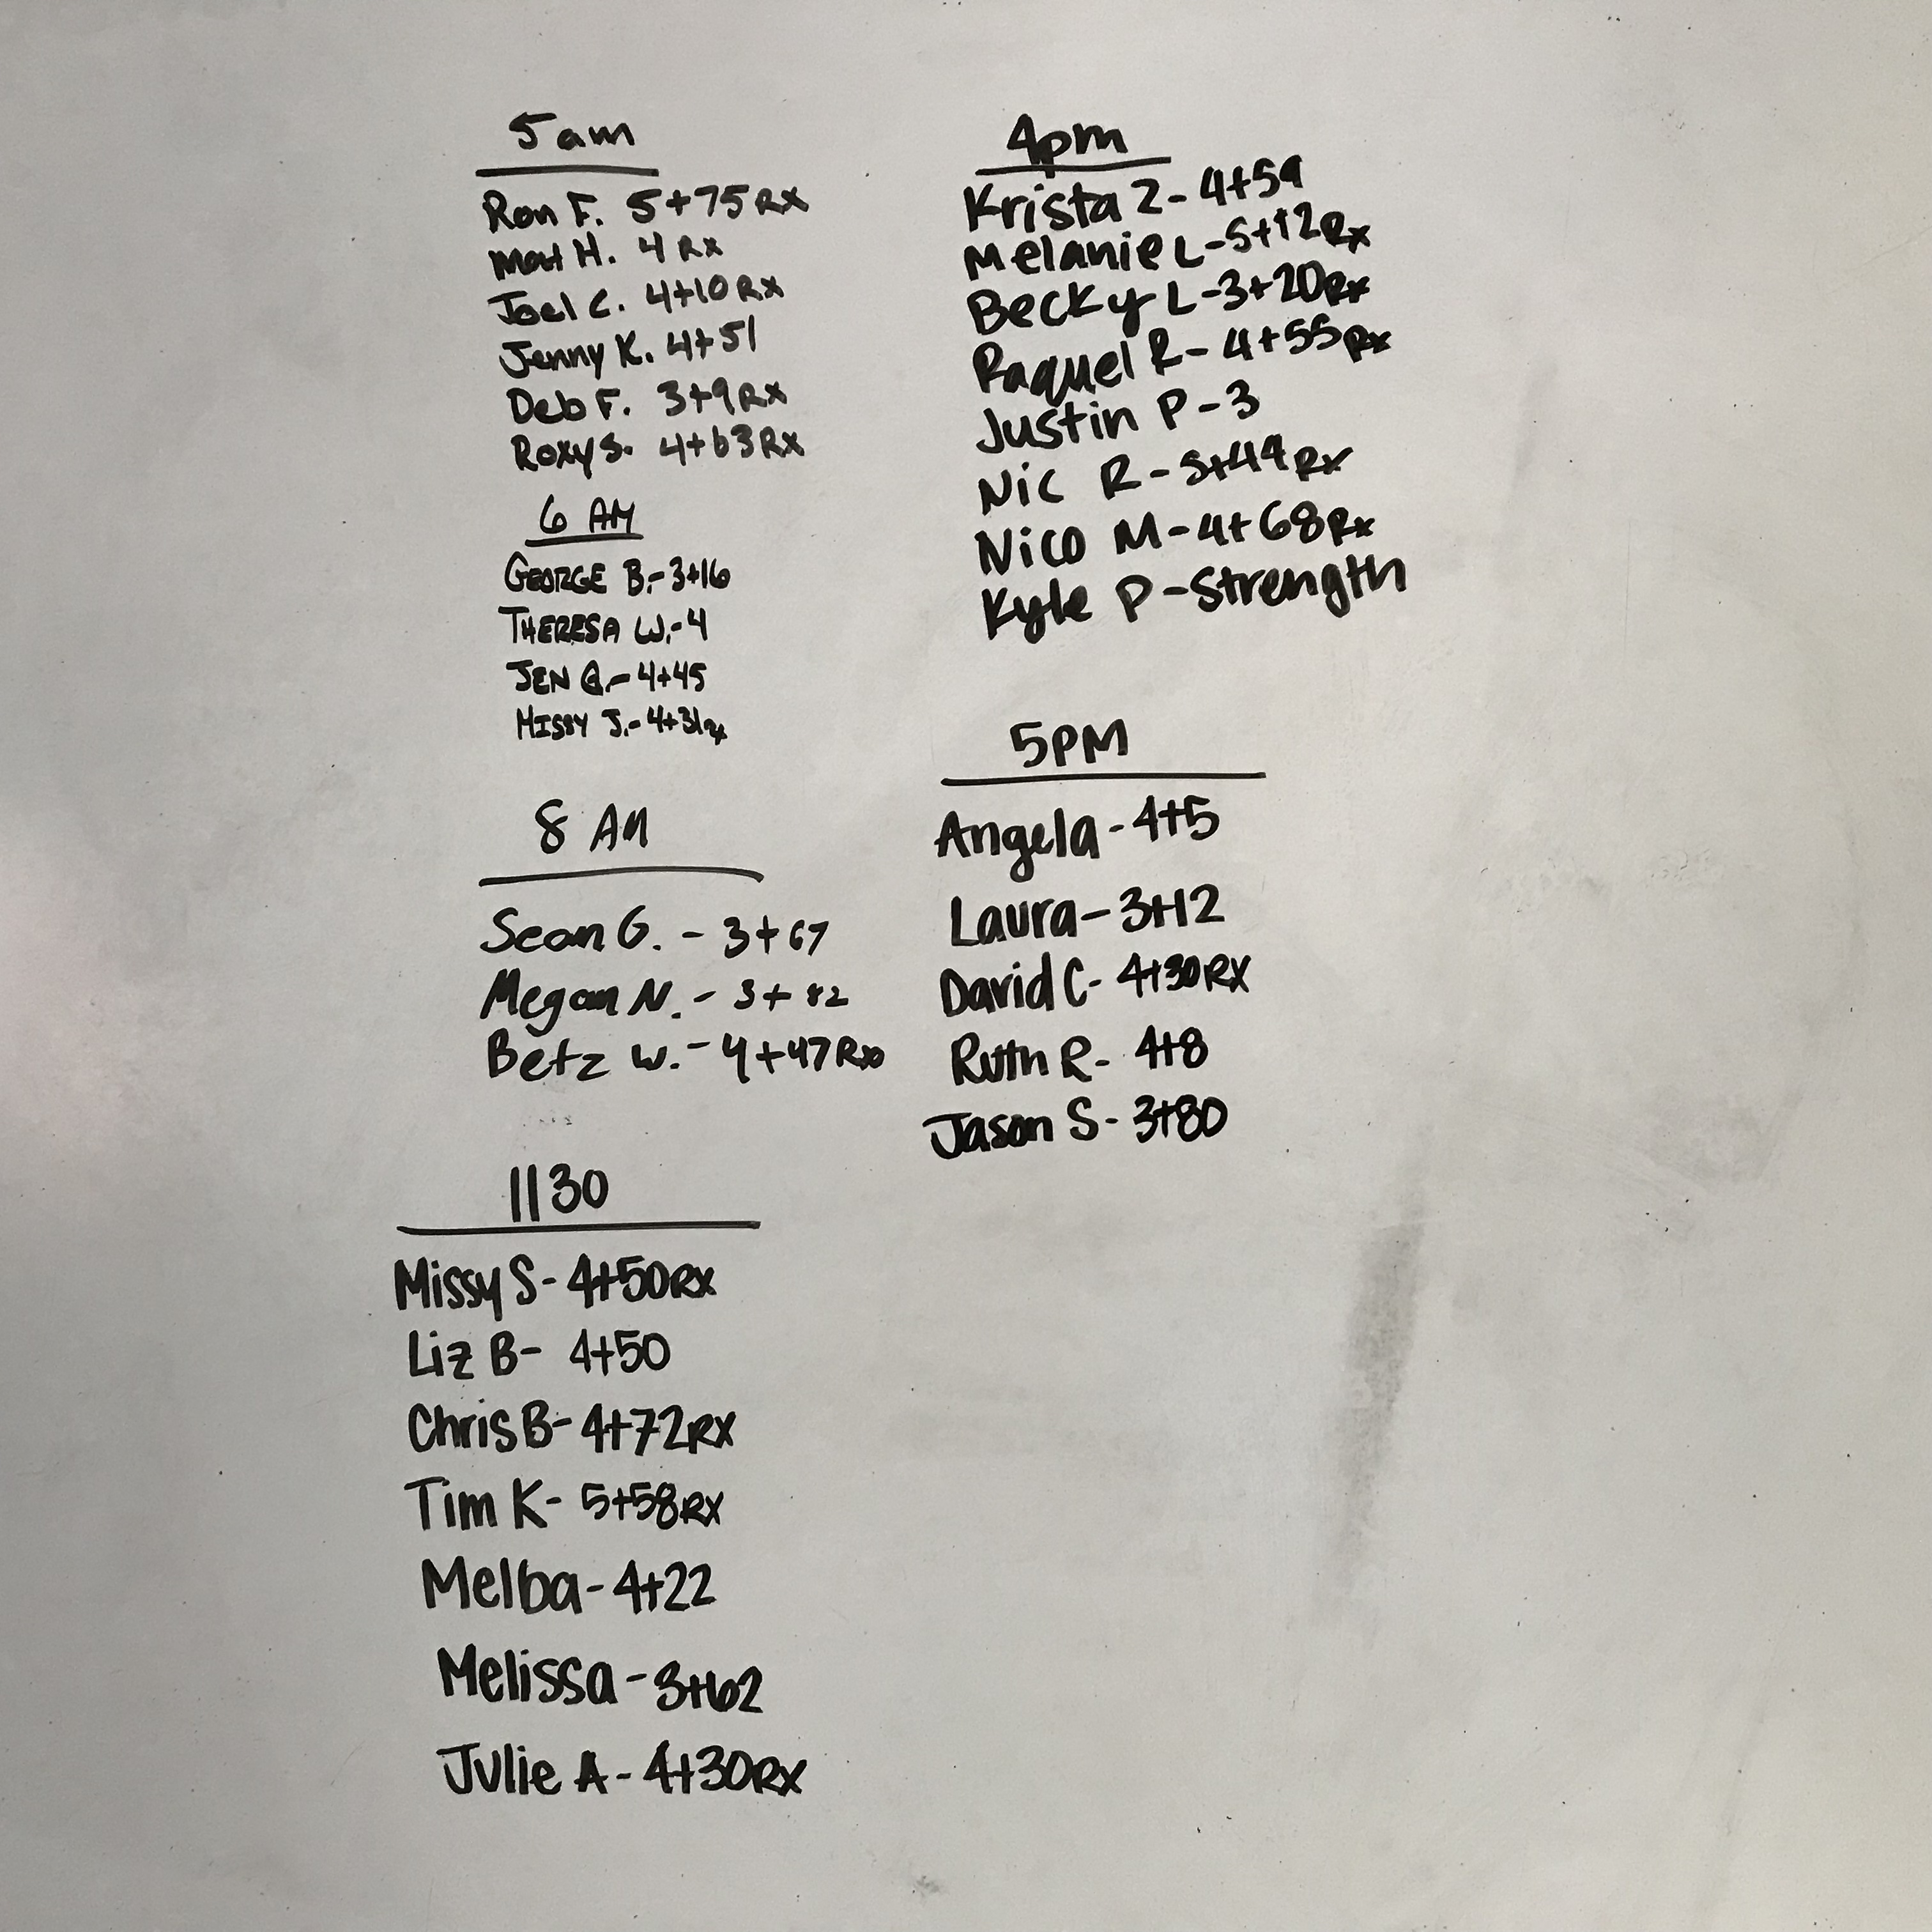 5am
Ron F. 5+75 Rx
Mat H. 4 Rx
Joel C. 4+10 Rx
Jenny K. 4+51
Deb F. 3+9 Rx
Roxy S. 4+63 Rx
6 AM
GEORGE B.- 3+16
THERESA W.- 4
JEN G.- 4+45
MISSY J.- 4+31 Rx
8 AM
Sean G. - 3+67
Megan N. - 3+82
Betz W. - 4+47 Rx
1130
Missy S- 4+50RX
Liz B- 4+50
Chris B- 4+72RX
Tim K- 5+58RX
Melba- 4+22
Melissa- 3+62
Julie A- 4+30RX
4pm
Krista Z- 4+59
Melanie L-5+12Rx
Becky L-3+20Rx
Raquel R- 4+55Rx
Justin P-3
Nic R-5+49Rx
Nico M-4+68Rx
Kyle P-Strength
5PM
Angela- 4+5
Laura- 3+12
David C- 4+30RX
Ruth R- 4+8
Jason S- 3+80